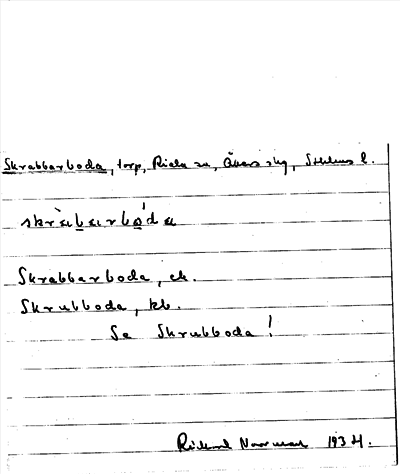 Skrabbarboda, torp, Riala sn, Åkers skg, Sthlms l.
skràbarbóda
Skrabbarboda, ek.
Skrubboda, kb.
Se Skrubboda!
Rickard Norrman 1934.